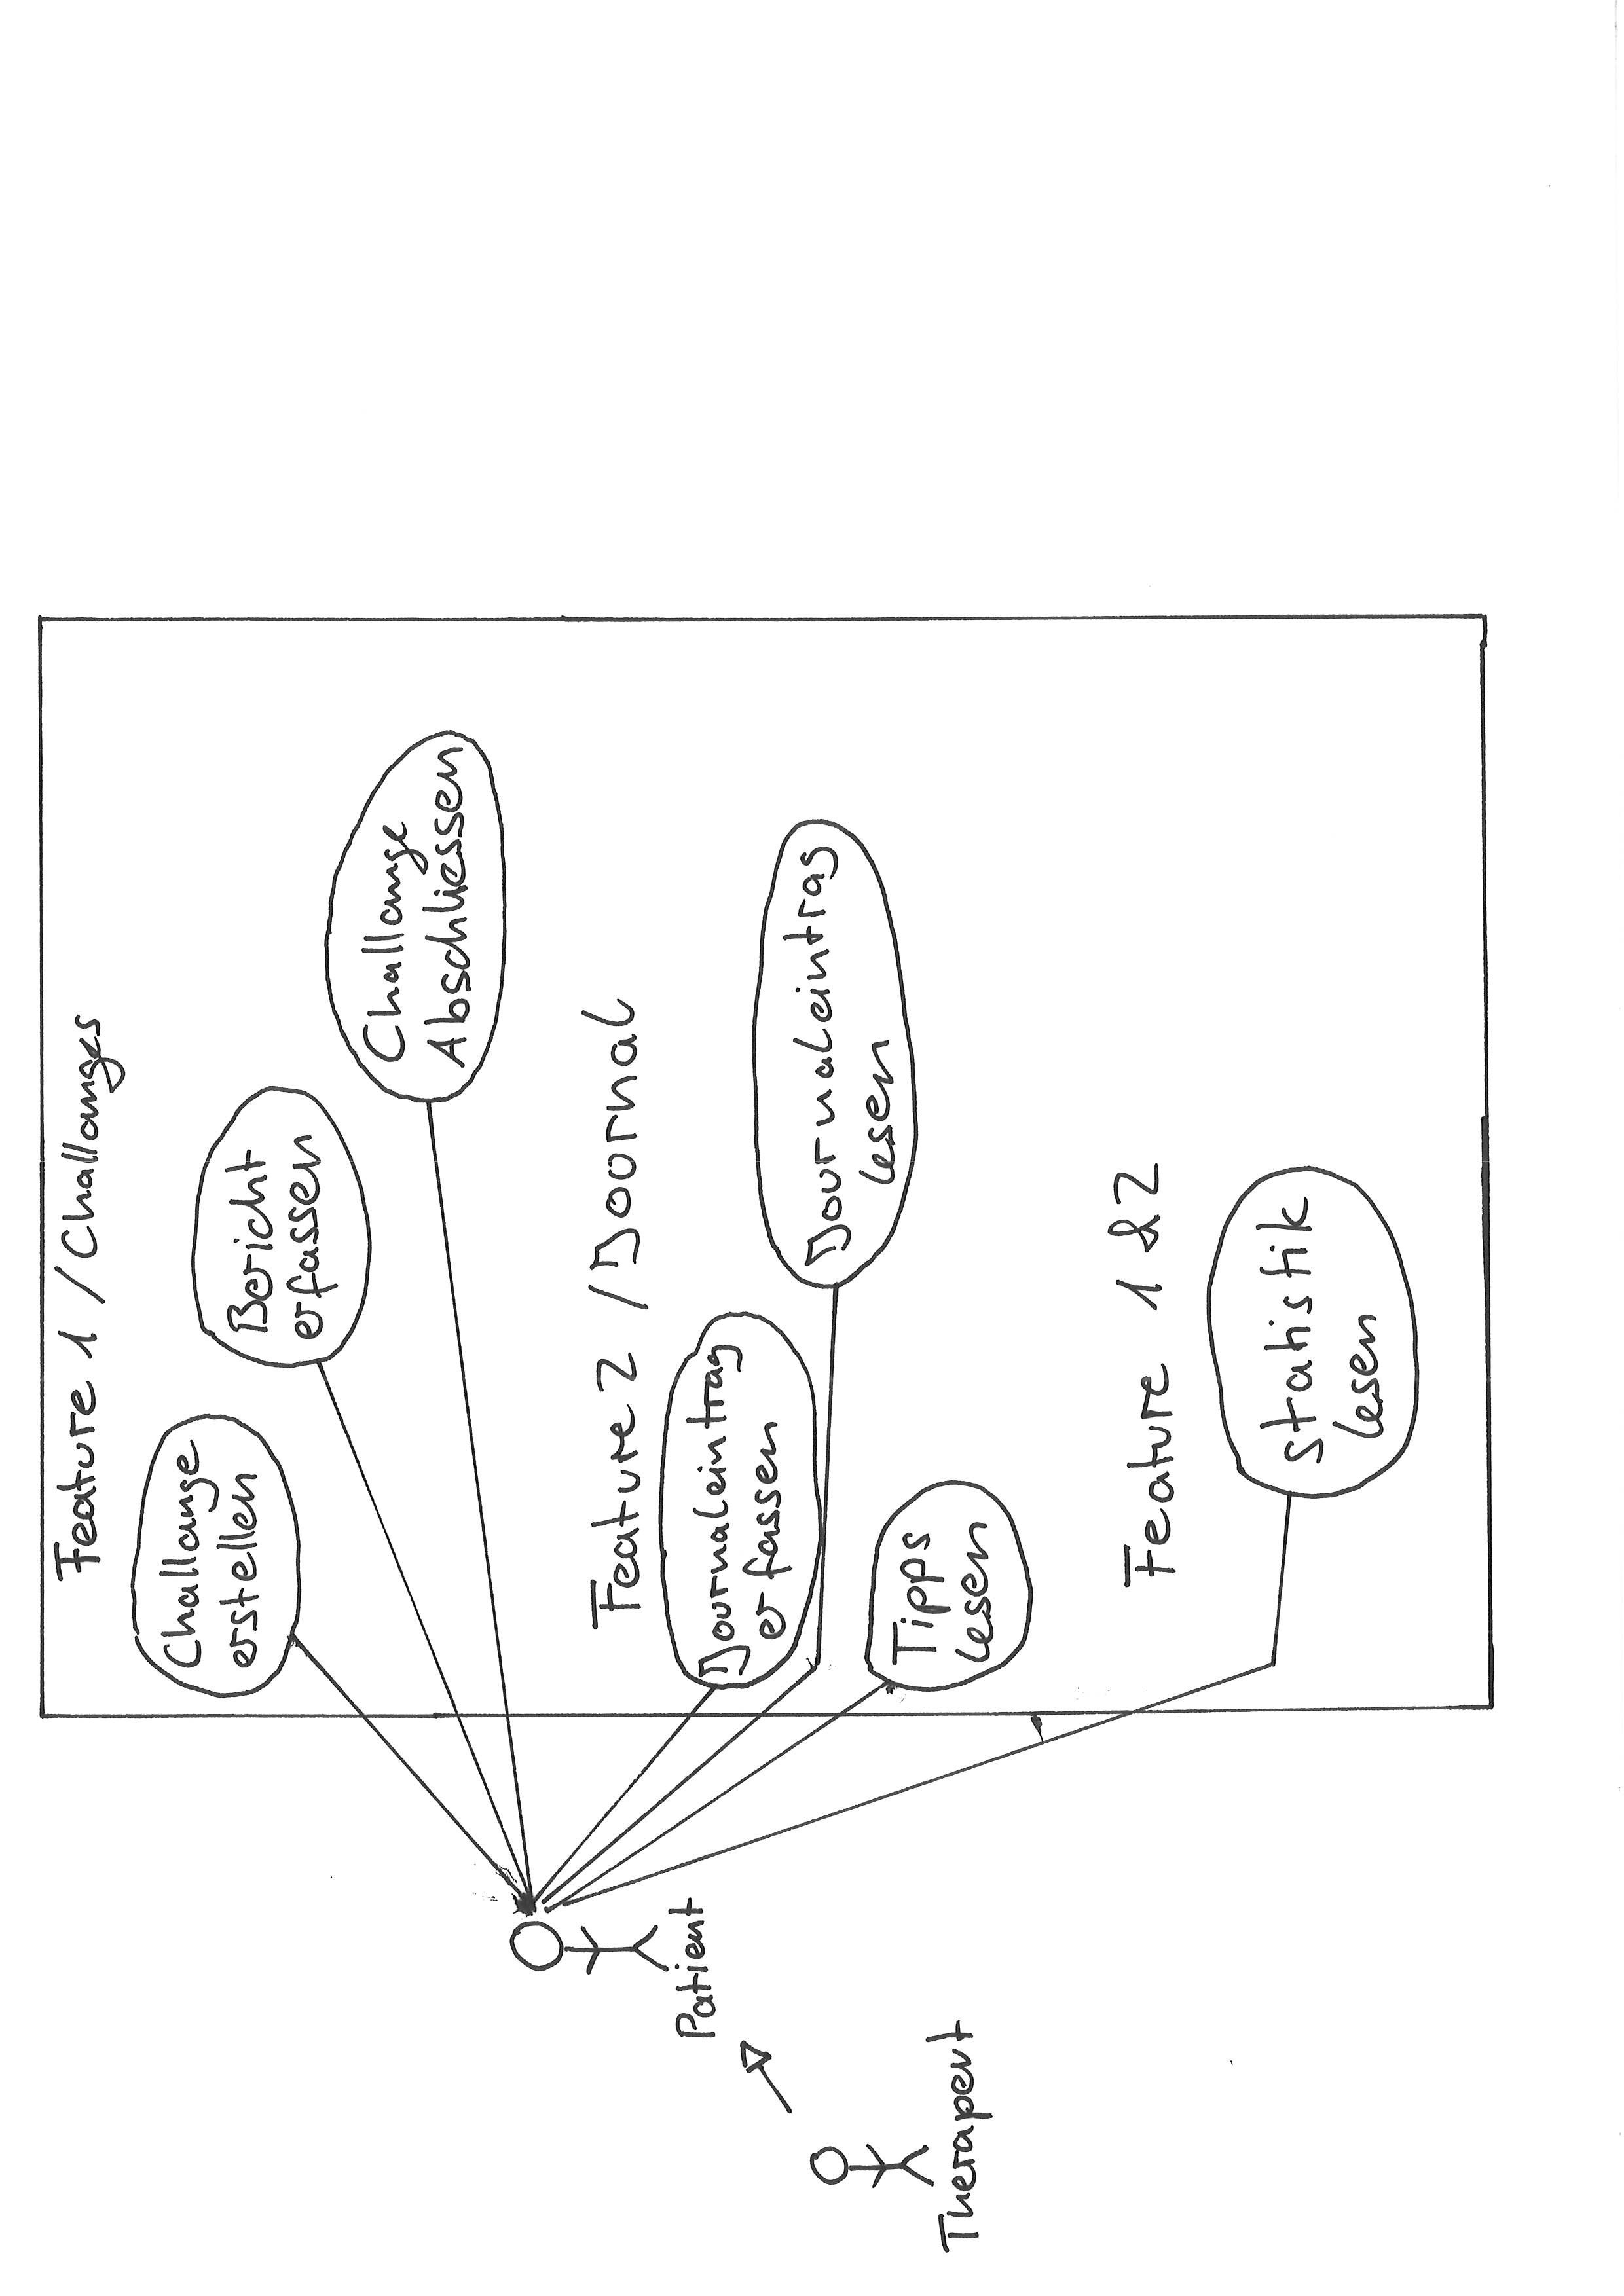 Feature 1 / Challanges
Challange
erstellen
Bericht
erfassen
Challange
Abschliessen
Feature 2 / Journal
Journaleintrag
erfassen
Journaleintrag
lesen
Tipps
lesen
Feature 1 & 2
Statistik
lesen
Patient
Therapeut